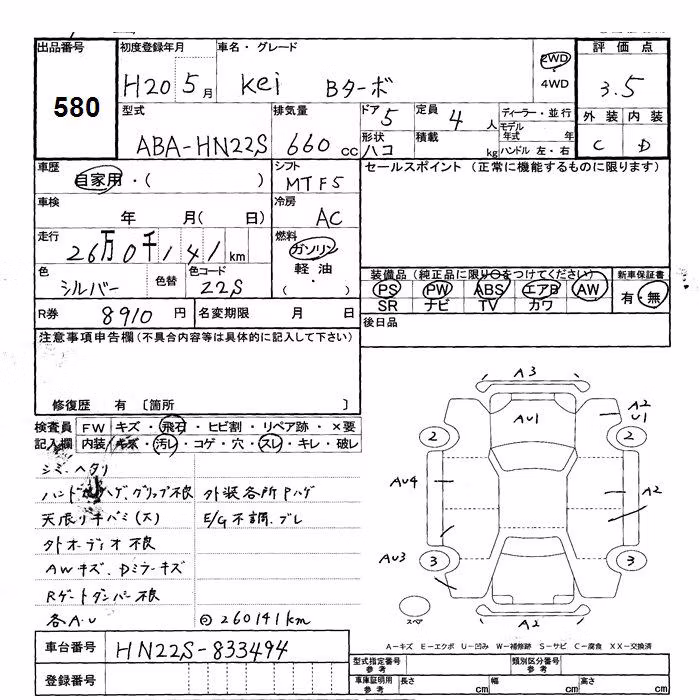 出品番号
580
初度登録年月
H20 5月
車名・グレード
Kei Bターボ
2WD
・
4WD
評価点
3.5
外装 内装
C D
型式
ABA-HN22S
排気量
660 cc
ドア 5
形状
ハコ
定員 4 人
積載 kg
ディーラー・並行
モデル
年式 年
ハンドル 左・右
車歴
自家用・( )
シフト
MTF5
セールスポイント (正常に機能するものに限ります)
車検
年 月( 日)
冷房
AC
走行
26万0千141km
燃料
ガソリン
軽油
( ・ )
色
シルバー
色替
色コード
Z2S
装備品(純正品に限り○をつけてください)
PS PW ABS エアB AW
SR ナビ TV カワ
新車保証書
有・無
R券 8910 円
名変期限 月 日
後日品
注意事項申告欄(不具合内容等は具体的に記入して下さい)
修復歴 有 〔箇所 〕
検査員
記入欄
FW キズ・飛石・ヒビ割・リペア跡・×要
内装 キズ・汚レ・コゲ・穴・スレ・キレ・破レ
シミ、ヘタリ
ハゲ、グリップ不良
外装各所Pハゲ
E/G不調、ブレ
外オーディオ不良
AWキズ、Dミラーキズ
Rゲートダンパー不良
各A・U
260141km
A3
AU1
A2
U1
2
2
AU4
A2
AU3
3
3
スペア
A2
A-キズ E-エクボ U-凹み W-補修跡 S-サビ C-腐食 XX-交換済
車台番号 HN22S-833494
登録番号
型式指定番号
参考
類別区分番号
参考
車庫証明用
参考
長さ cm 幅 cm 高さ cm